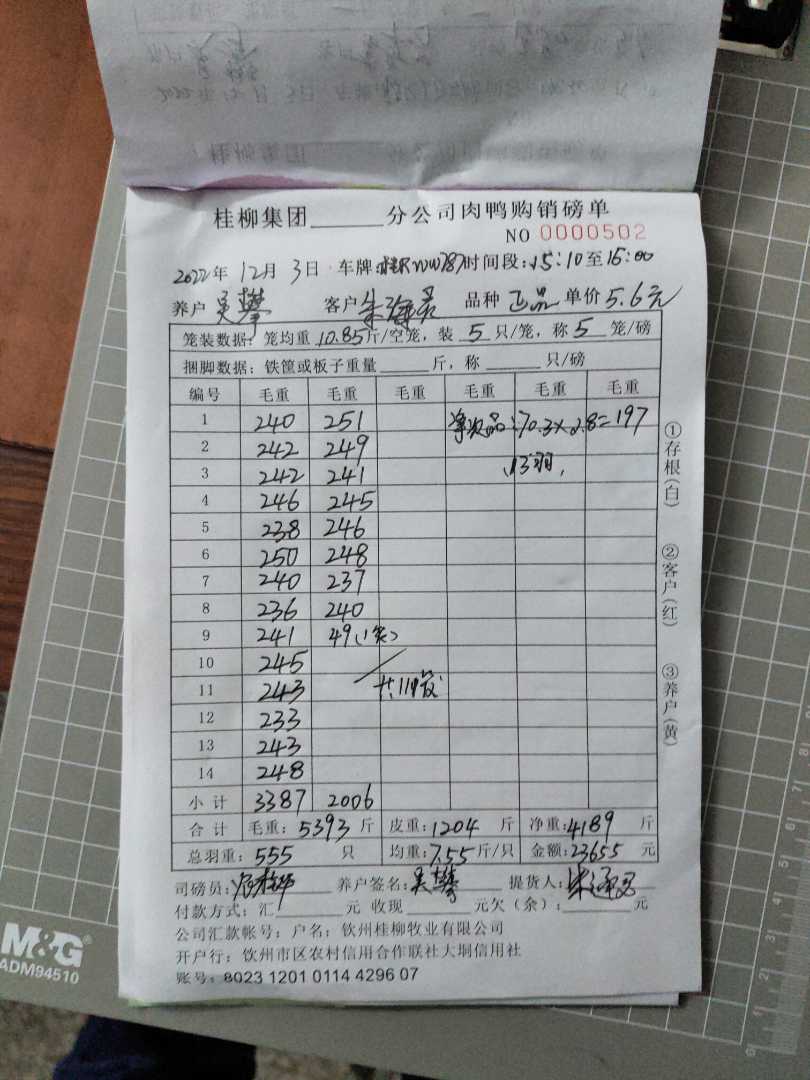 桂柳集团______分公司肉鸭购销磅单
NO 0000502
2022年 12月 3日 车牌: 时间段: 15:10至16:00
养户 吴攀 客户 品种 正品 单价 5.6元
笼装数据: 笼均重 10.85斤/空笼, 装 5 只/笼, 称 5 笼/磅
捆脚数据: 铁筐或板子重量______斤, 称______只/磅
编号 毛重 毛重 毛重 毛重 毛重 毛重
1 240 251 次品: 70.3×2.8=197
2 242 249 13羽,
3 242 241
4 246 245
5 238 246
6 250 248
7 240 237
8 236 240
9 241 49(1笼)
10 245
11 243 共111笼
12 233
13 243
14 248
小计 3387 2006
合计 毛重: 5393 斤 皮重: 1204 斤 净重: 4189 斤
总羽重: 555 只 均重: 7.55 斤/只 金额: 23655 元
司磅员: 养户签名: 吴攀 提货人:
付款方式: 汇______元 收现______元欠(余): ______元
公司汇款帐号: 户名: 钦州桂柳牧业有限公司
开户行: 钦州市区农村信用合作联社大垌信用社
账号: 8023 1201 0114 4296 07
①存根(白)
②客户(红)
③养户(黄)
M&G
ADM94510